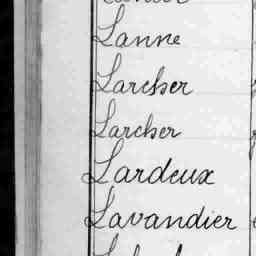 Lanne
Larcher
Larcher
Lardeux
Lavandier